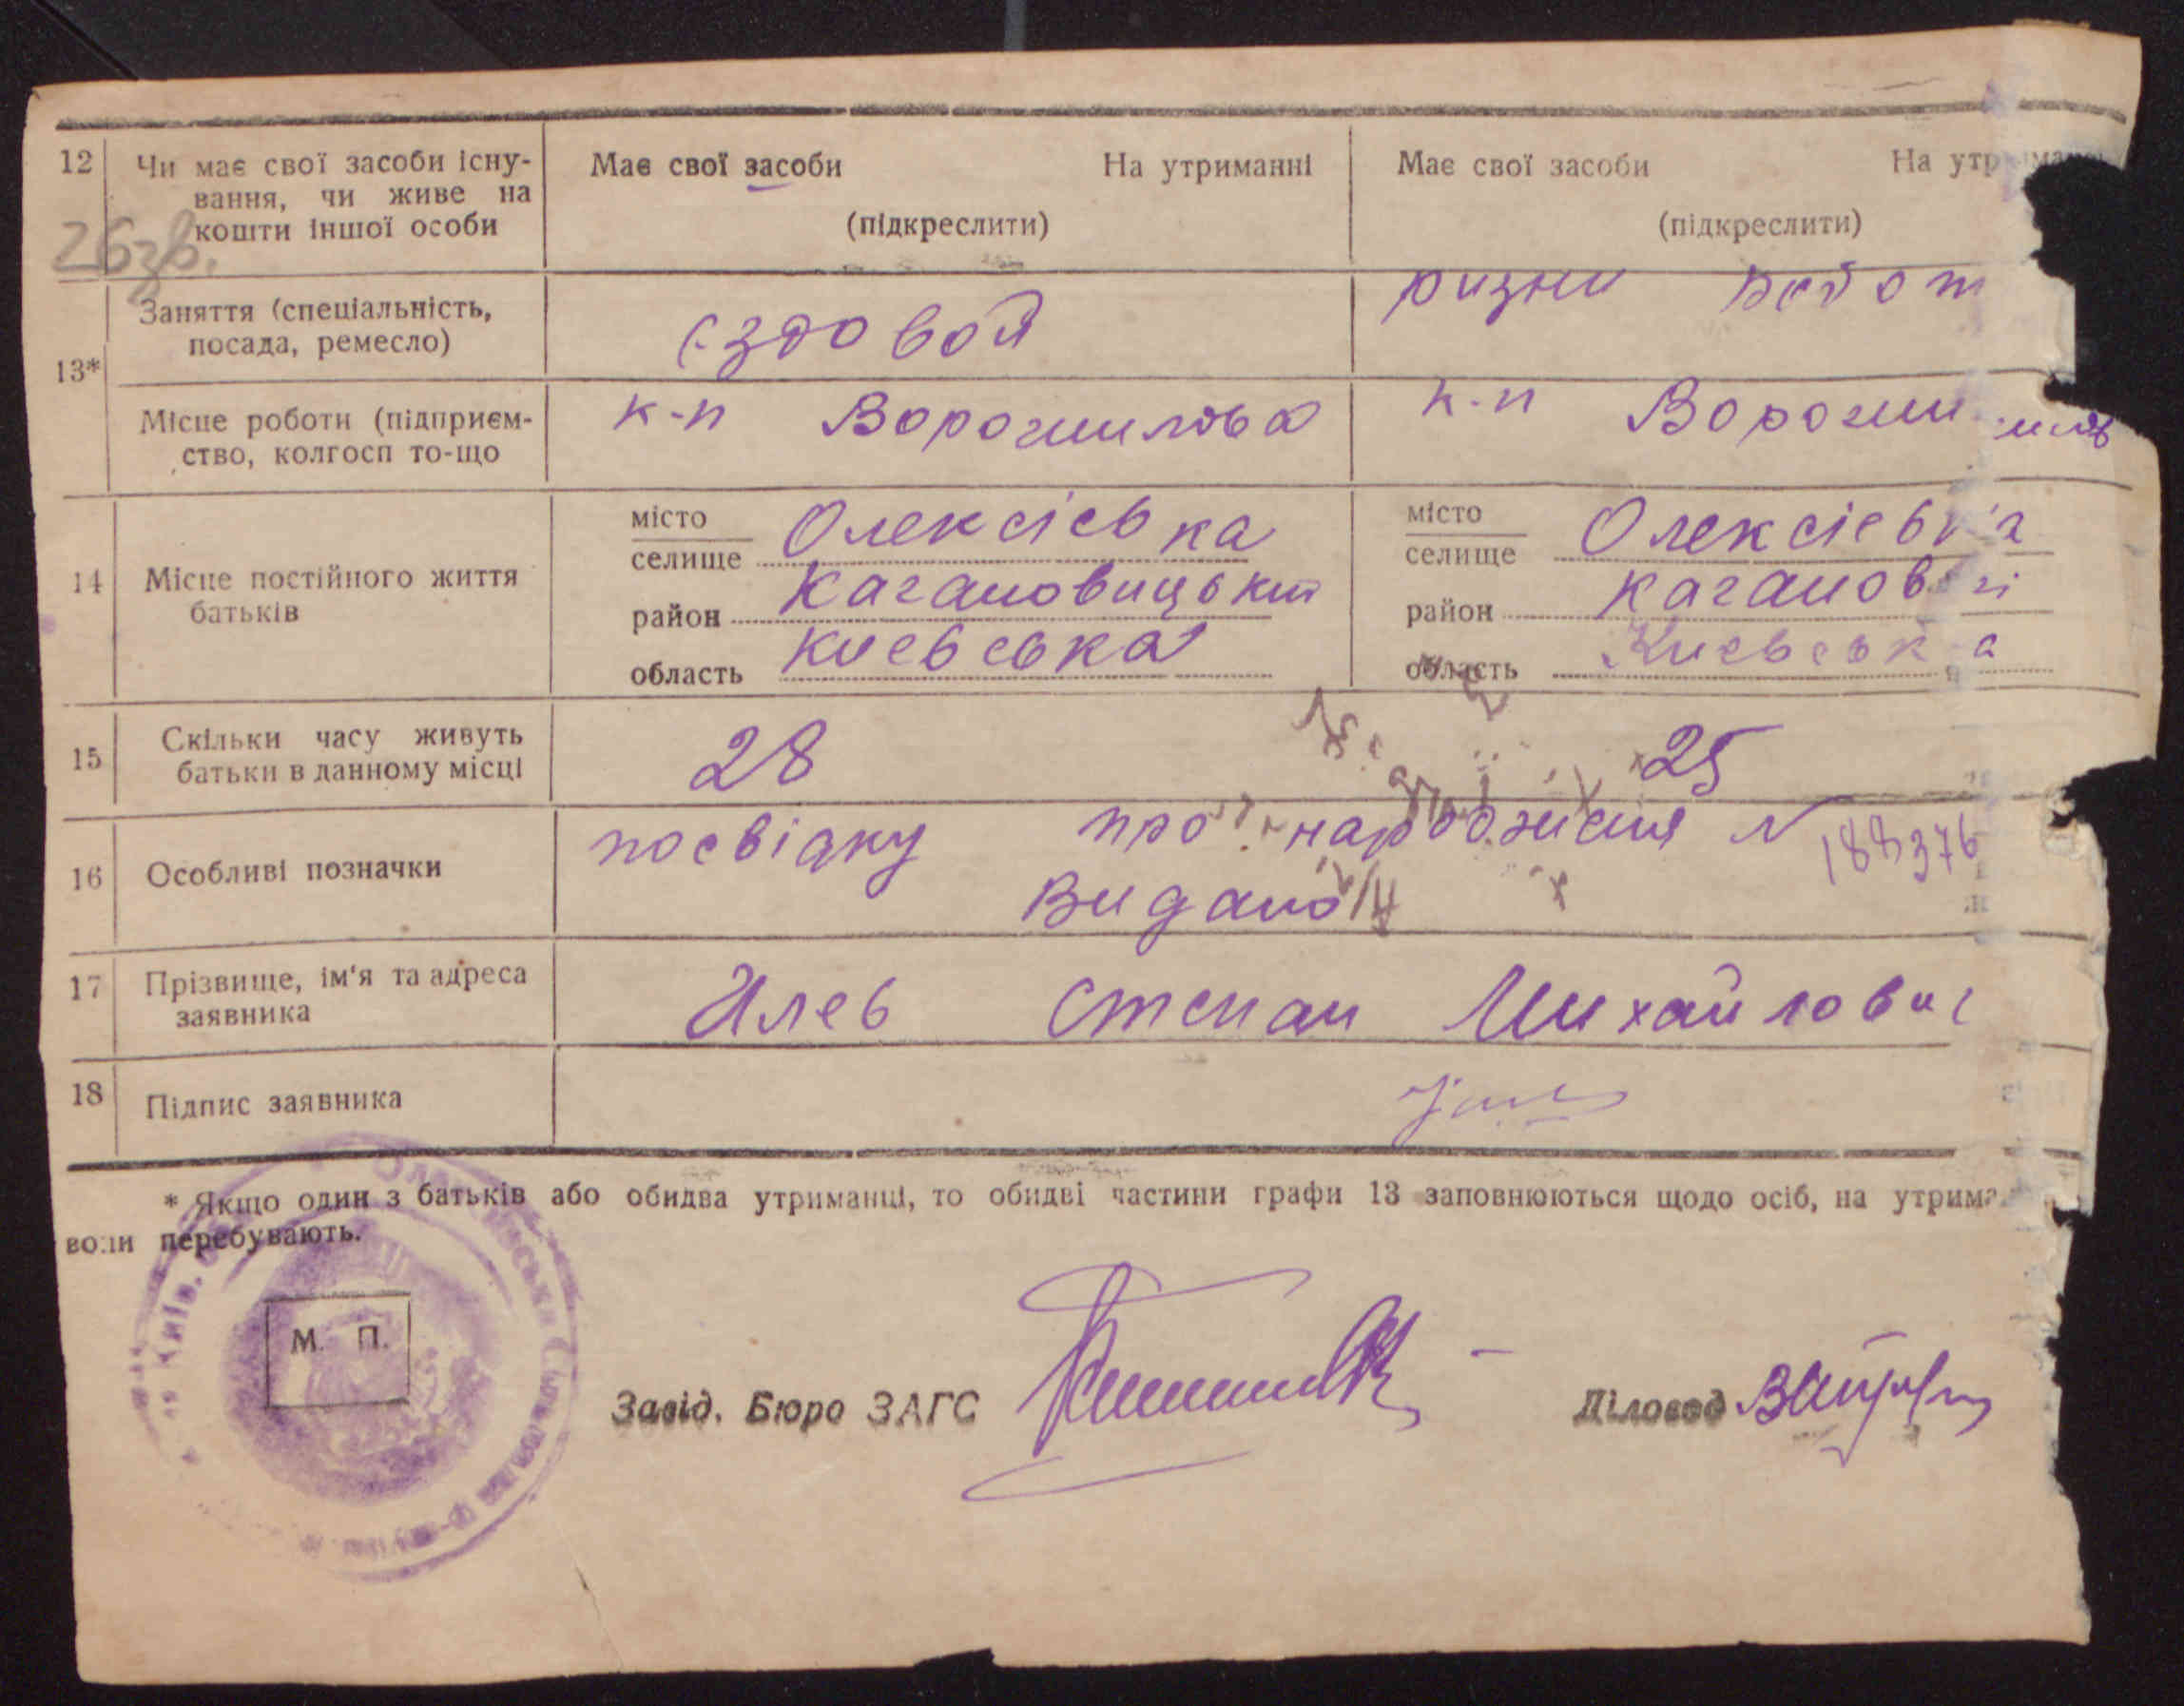 12 Чи має свої засоби існу-
вання, чи живе на
кошти іншої особи
Має свої засоби На утриманні
(підкреслити)
Має свої засоби На утр
(підкреслити)
26зв.
13*
Заняття (спеціальність,
посада, ремесло)
єздовой
ризни
Місце роботи (підприєм-
ство, колгосп то-що
к-п Ворошилова
к-п Вороши
14 Місце постійного життя
батьків
місто
селище Олексієвка
район Кагановицький
область Києвська
місто
селище Олексієвка
район Каганов
область Києвська
15 Скільки часу живуть
батьки в данному місці
28
25
16 Особливі позначки
посвідку про народження N 188376
Видано
17 Прізвище, ім'я та адреса
заявника
Илев Степан Михайлович
18 Підпис заявника
* Якщо один з батьків або обидва утриманці, то обидві частини графи 13 заповнюються щодо осіб, на утрима
вони перебувають.
М. П.
Завід. Бюро ЗАГС
Діловод